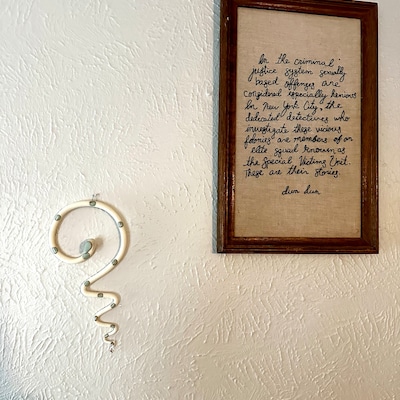 In the criminal
justice system sexually
based offenses are
considered especially heinous
In New York City, the
dedicated detectives who
investigate these vicious
felonies are members of an
elite squad known as
the Special Victims Unit.
These are their stories.
dun dun